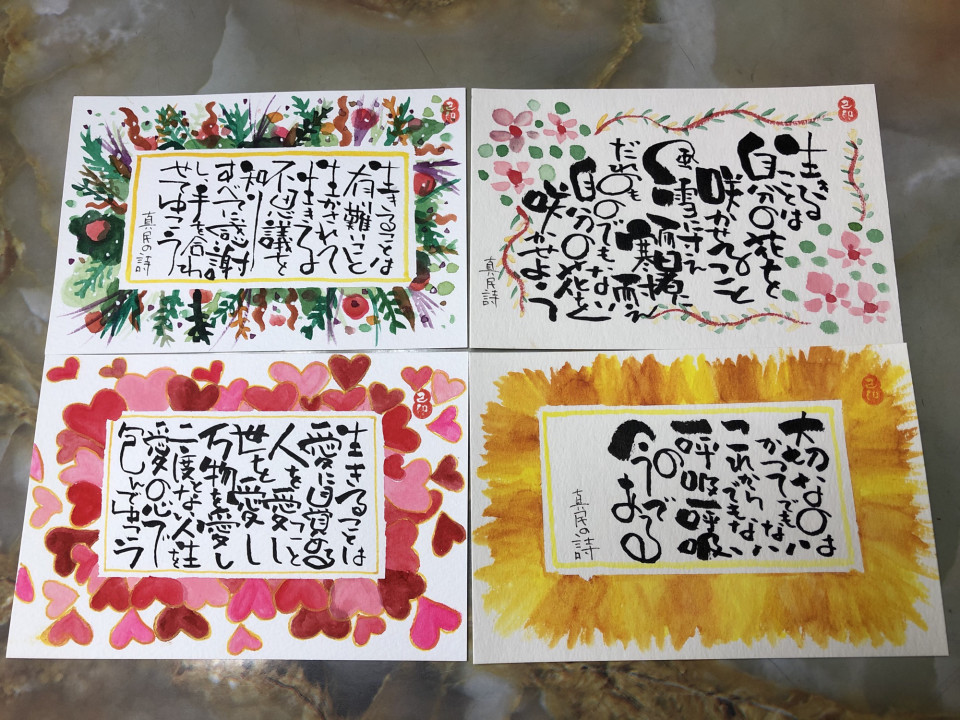 生きることは
有難いこと
生かされて
生きてる
不思議を
知り
すべに感謝
し、手を合わ
せてゆこう
真民の詩
生きる
ことは
自分の花を
咲かせること
風雪に耐え
寒暑に耐え
だれのものでもない
自分の花を
咲かせよう
真民詩
生きることは
愛に目覚める
こと
人を愛し
世を愛し
万物を愛し
二度とない人生を
愛の心で
包んでゆこう
大切なのは
かつてでもない
これからでもない
一呼吸一呼吸
の
今である
真民の詩